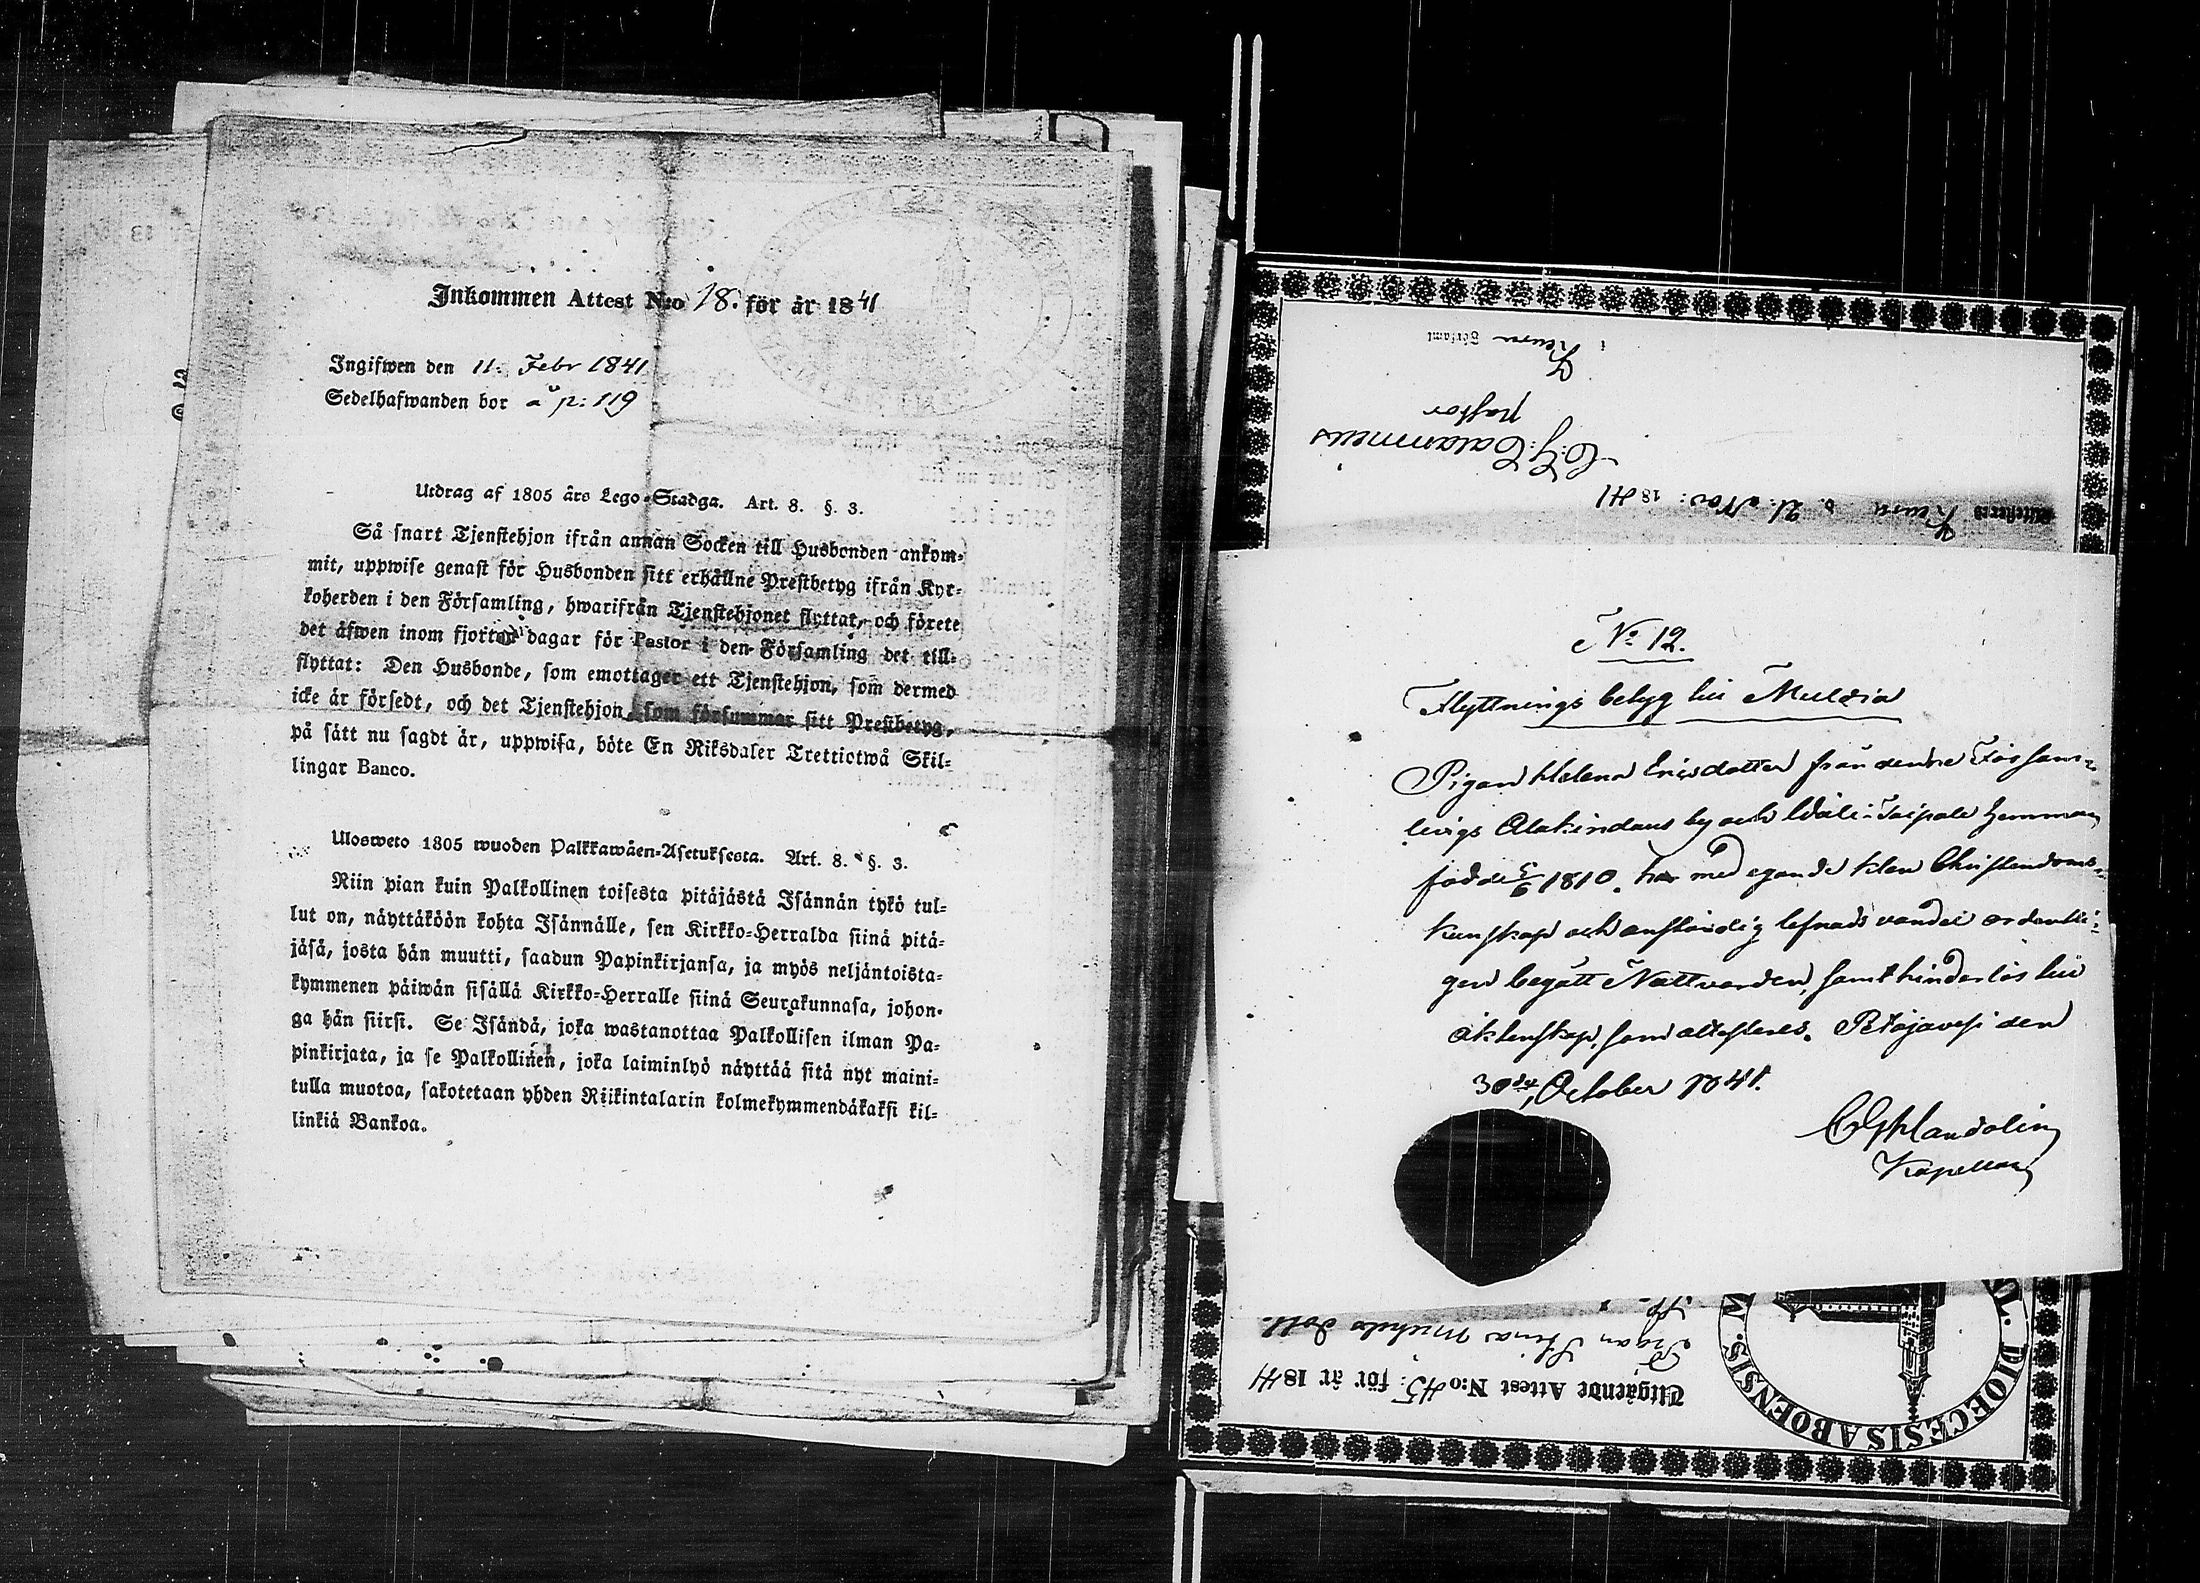 Inkommen Attest N:o 18. för år 1841
Ingifwen den 11. Febr 1841
Sedelhafwanden bor å p: 119
Utdrag af 1805 års Lego-Stadga. Art. 8. §. 3.
Så snart Tjenstehjon ifrån annan Socken till Husbonden ankom-
mit, uppwise genast för Husbonden sitt erhållne Prestbetyg ifrån Kyr-
koherden i den Församling, hwarifrån Tjenstehjonet flyttat, och förete
det äfwen inom fjorton dagar för Pastor i den Församling det till-
flyttat: Den Husbonde, som emottager ett Tjenstehjon, som dermed
icke är försedt, och det Tjenstehjon, som försummar sitt Prestbetyg,
på sätt nu sagdt är, uppwisa, böte En Riksdaler Trettiotwå Skil-
lingar Banco.
Ulosweto 1805 wuoden Palkkawäen-Asetuksesta. Art. 8. §. 3.
Niin pian kuin Palkollinen toisesta pitäjästä Isännän tykö tul-
lut on, näyttäköön kohta Isännälle, sen Kirkko-Herralda siinä pitä-
jäsä, josta hän muutti, saadun Papinkirjansa, ja myös neljäntoista-
kymmenen päiwän sisällä Kirkko-Herralle siinä Seurakunnasa, johon-
ga hän siirsi. Se Isändä, joka wastanottaa Palkollisen ilman Pa-
pinkirjata, ja se Palkollinen, joka laiminlyö näyttää sitä nyt maini-
tulla muotoa, sakotetaan yhden Riikintalarin kolmekymmendäkaksi kil-
linkiä Bankoa.
Utgående Attest N:o 45. för år 1841
Pigan Stina Michels dott.
W. SIS
L. DIOECESIS ABOENSIS
Attesteres Keuru d. 21. Nov: 1841
C. G. Calamnius
Pastor
i Keuru Församl
No 12.
Flyttnings betyg till Muldia
Pigan Helena Ericsdotter från denne Försam-
lings Alakindaus by och Wäli-Taipale hemman,
född 5/6 1810, har med egande klen Christendoms-
kunskap och anständig lefnads vandel ordentli-
gen begått Nattvarden, samt hinderlös till
äktenskap, som attesteres. Petäjävesi den
30de October 1841.
C G Mandolin
Kapellan